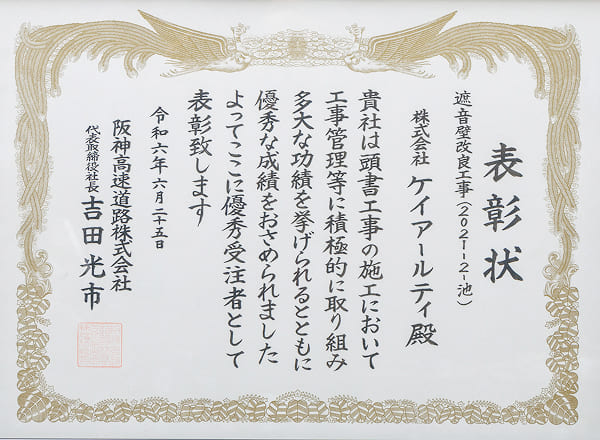 表彰状
遮音壁改良工事(2021-2-池)
株式会社 ケイアールティ 殿
貴社は頭書工事の施工において
工事管理等に積極的に取り組み
多大な功績を挙げられるとともに
優秀な成績をおさめられました
よってここに優秀受注者として
表彰致します
令和六年六月二十五日
阪神高速道路株式会社
代表取締役社長 吉田光市